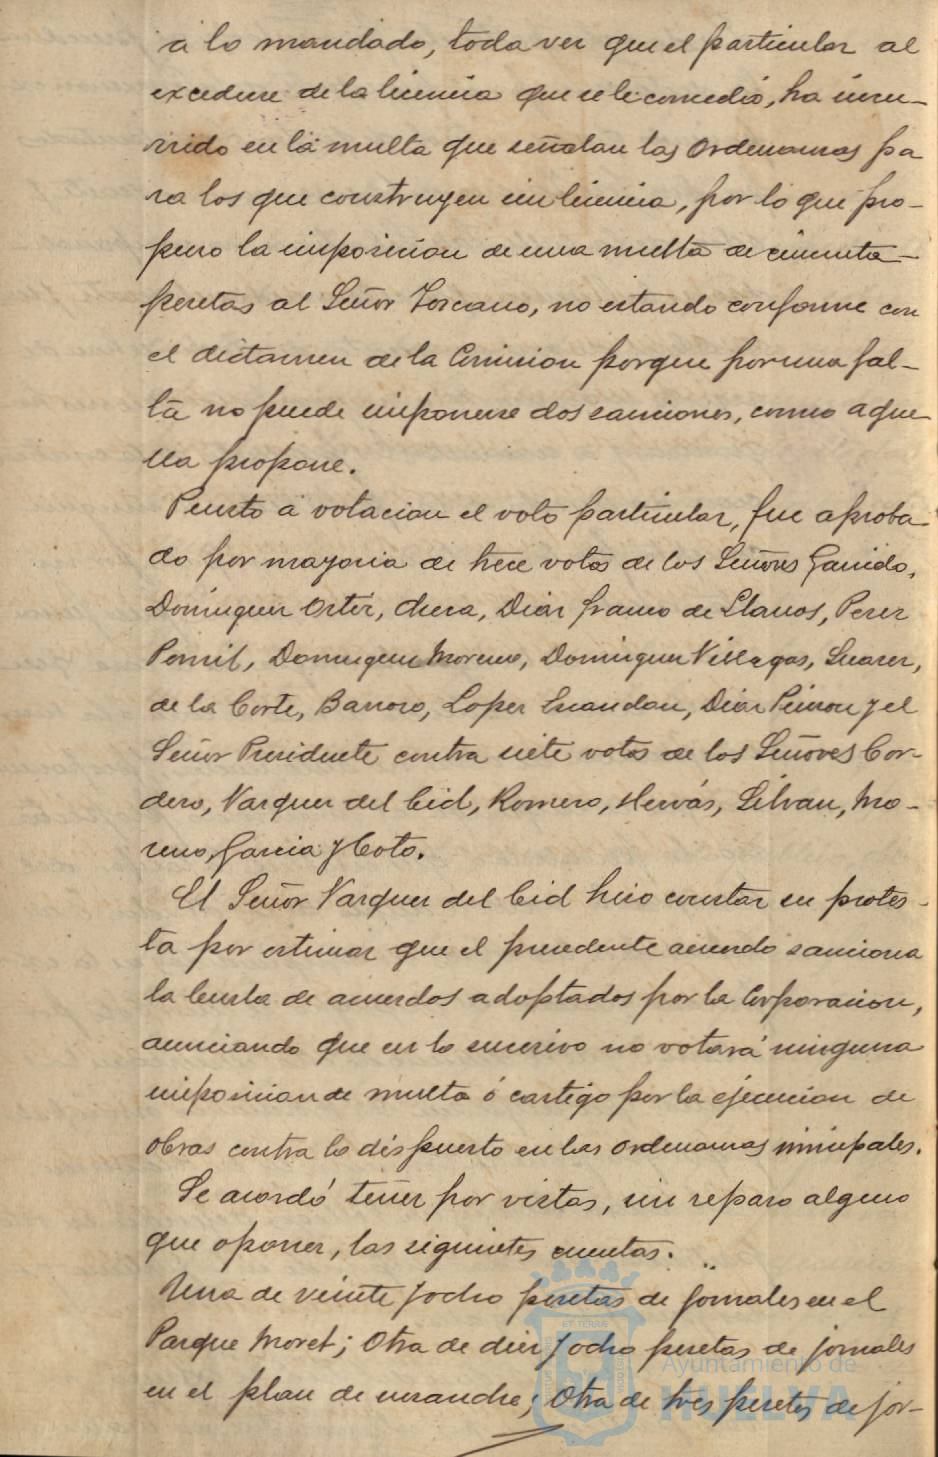 a lo mandado, toda vez que el particular al
excederse de la licencia que se le concedió, ha incu-
rrido en la multa que señalan las Ordenanzas pa
ra los que construyen sin licencia, por lo que pro-
puso la imposicion de una multa de cincuenta-
pesetas al Señor Toscano, no estando conforme con
el dictamen de la Comision porque por una fal-
ta no puede imponerse dos sanciones, como aque
lla propone.
Puesto a votacion el voto particular, fue aproba
do por mayoria de trece votos de los Señores Garrido,
Dominguez Ortiz, Checa, Diaz Franco de Llanos, Perez
Pomil, Dominguez Moreno, Dominguez Villegas, Suarez,
de la Corte, Barroso, Lopez, Diaz Pinzon y el
Señor Presidente contra siete votos de los Señores Cor-
dero, Vazquez del Cid, Romero, Hervás, Silvan, Mo-
reno, Garcia y Coto.
El Señor Vazquez del Cid hizo constar su protes-
ta por estimar que el precedente acuerdo sanciona
la burla de acuerdos adoptados por la Corporacion,
anunciando que en lo sucesivo no votará ninguna
imposicion de multa ó castigo por la ejecucion de
obras contra lo dispuesto en las Ordenanzas minipales.
Se acordó tener por vistas, sin reparo alguno
que oponer, las siguientes cuentas.
Una de veinte y ocho pesetas de jornales en el
Parque Moret; Otra de diez y ocho pesetas de jornales
en el plan de ensanche; Otra de tres pesetas de jor-
Ayuntamiento de
HUELVA